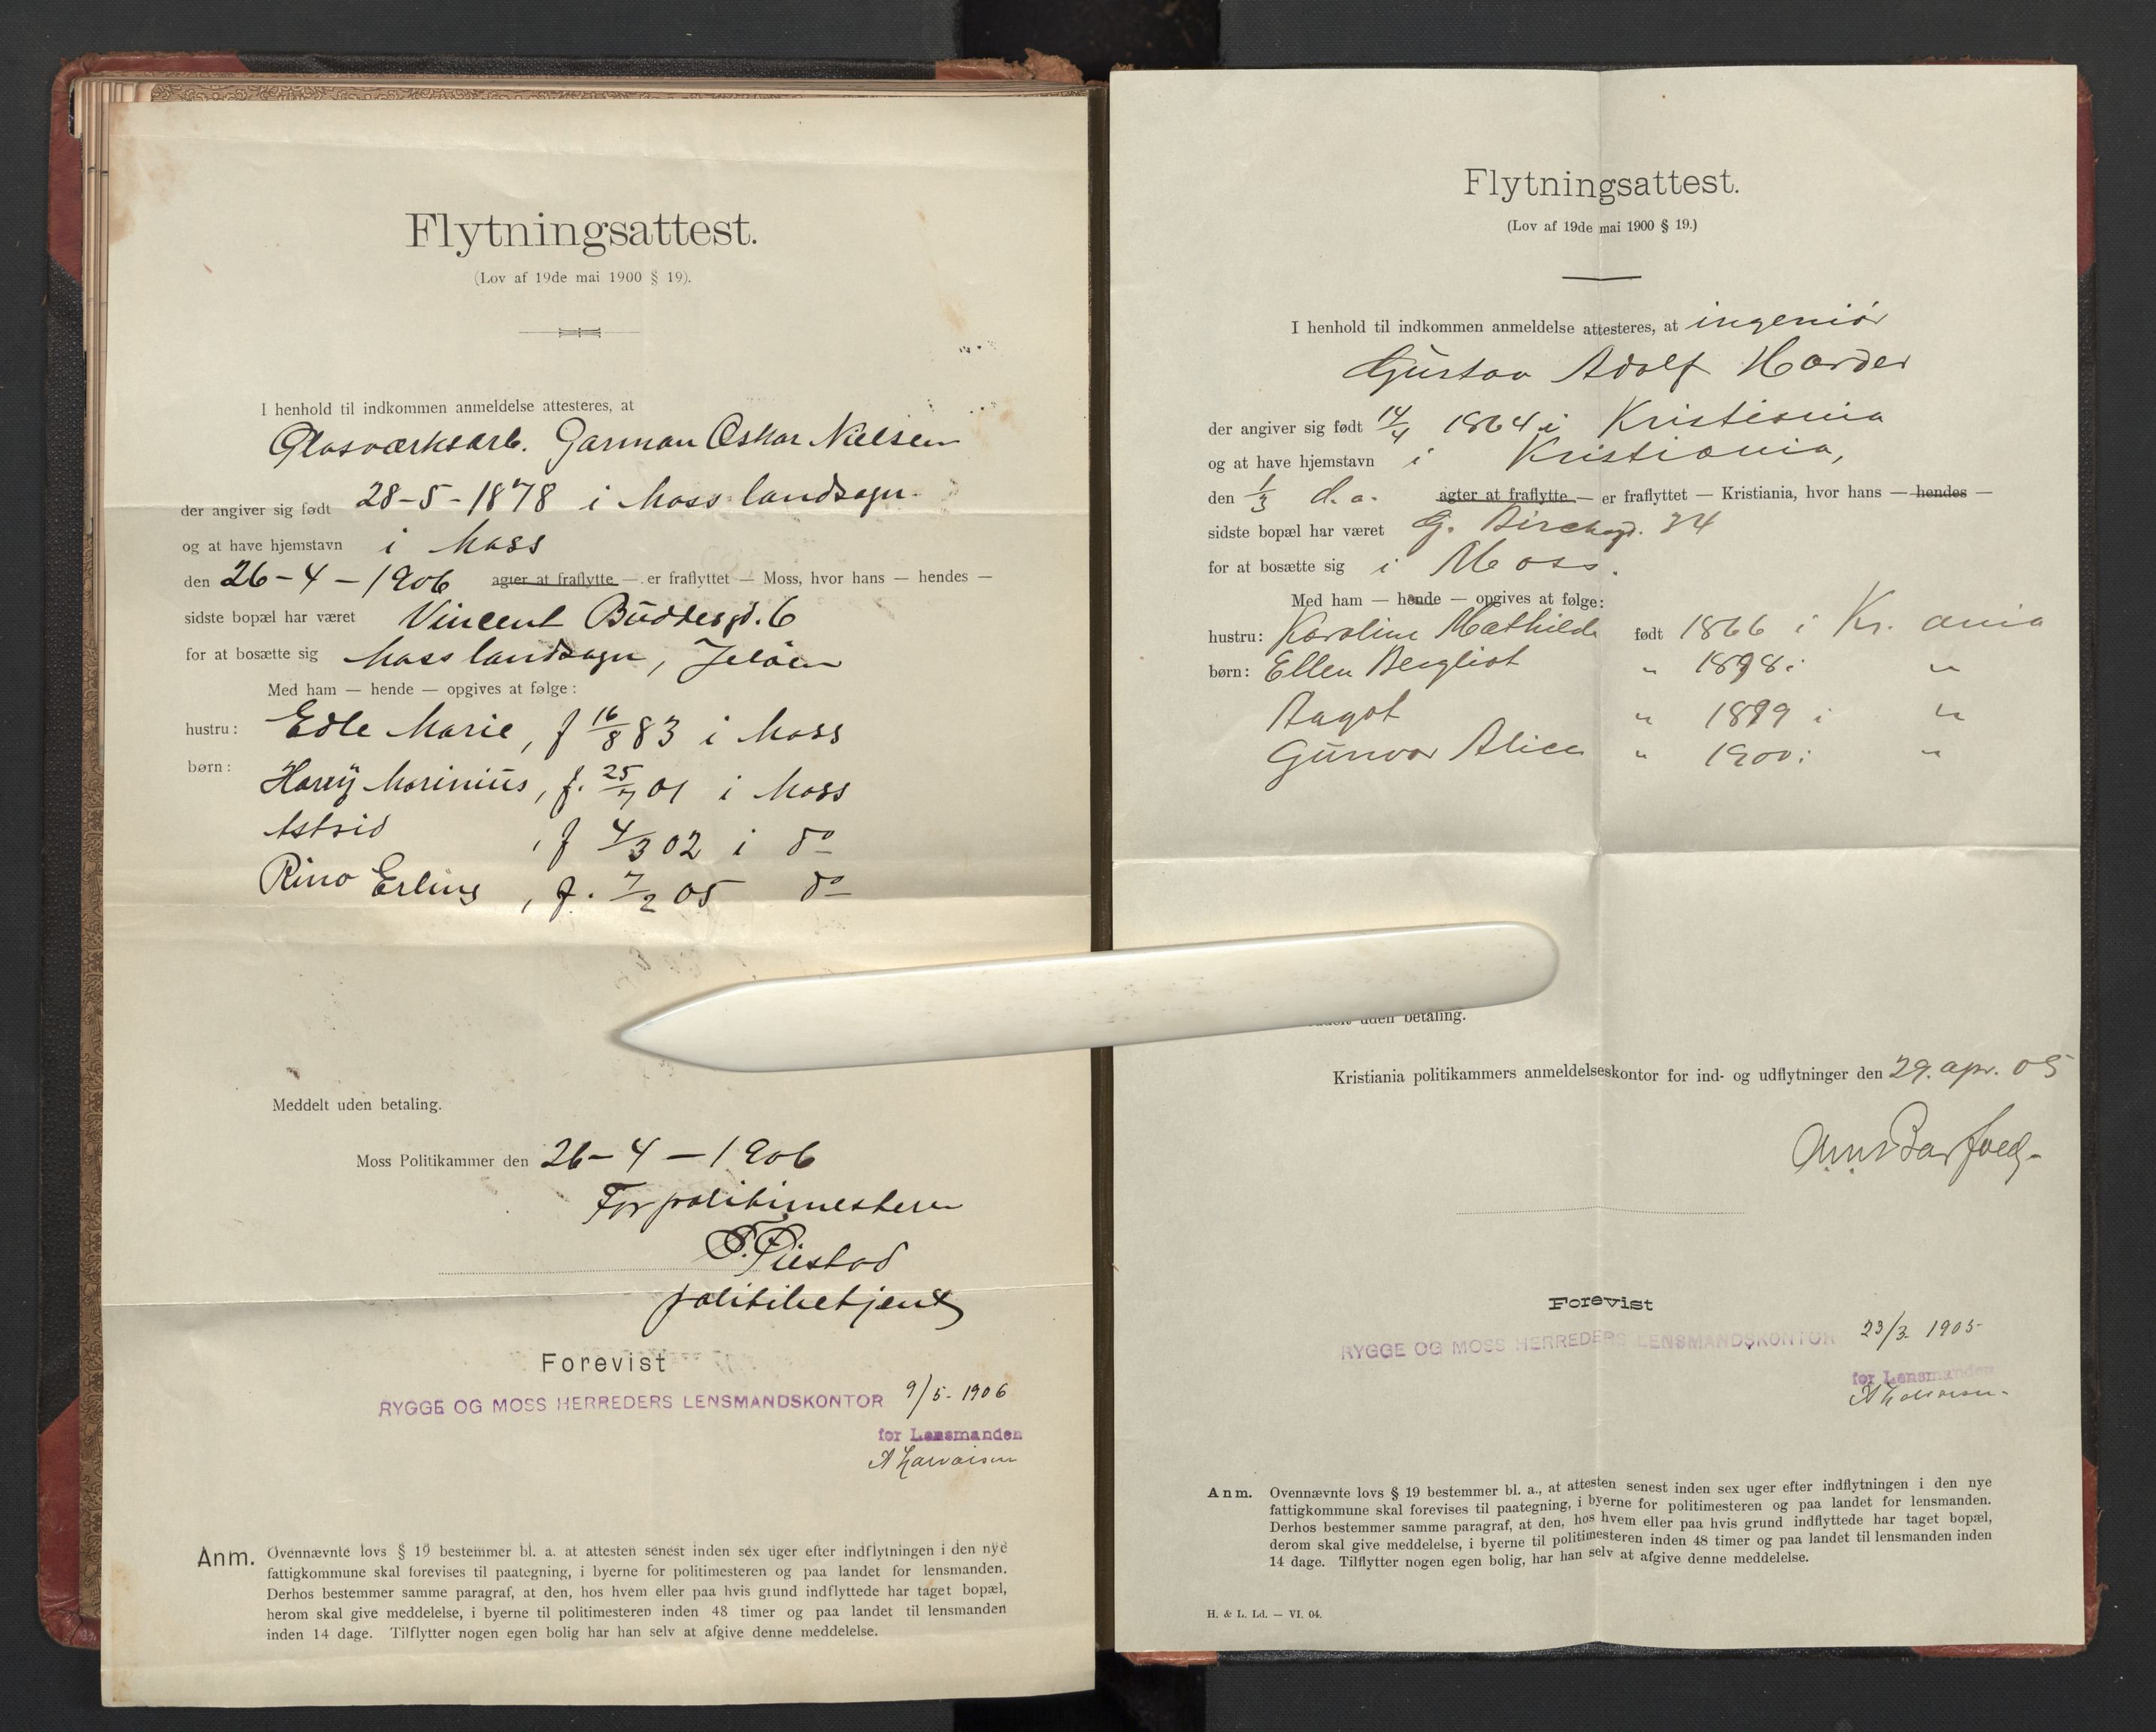 Flytningsattest.
(Lov af 19de mai 1900 § 19).
I henhold til indkommen anmeldelse attesteres, at
Glasværksarb. Garman Oskar Nielsen
der angiver sig født 28-5-1878 i Moss landsogn
og at have hjemstavn i Moss
den 26-4-1906 agter at fraflytte — er fraflyttet — Moss, hvor hans — hendes —
sidste bopæl har været Vincent Buddesgd. 6
for at bosætte sig Moss landsogn, Jeløen
Med ham — hende — opgives at følge:
hustru: Edle Marie, f 16/8 83 i Moss
børn: Harry Marinius, f. 25/7 01 i Moss
Astrid , f 4/3 02 i do
Rino Erling , f. 7/2 05 do
Meddelt uden betaling.
Moss Politikammer den 26-4-1906
For politimesteren
politibetjent
Forevist
RYGGE OG MOSS HERREDERS LENSMANDSKONTOR 9/5-1906
for Lensmanden
Anm. Ovennævnte lovs § 19 bestemmer bl. a. at attesten senest inden sex uger efter indflytningen i den nye
fattigkommune skal forevises til paategning, i byerne for politimesteren og paa landet for lensmanden.
Derhos bestemmer samme paragraf, at den, hos hvem eller paa hvis grund indflyttede har taget bopæl,
herom skal give meddelelse, i byerne til politimesteren inden 48 timer og paa landet til lensmanden
inden 14 dage. Tilflytter nogen egen bolig har han selv at afgive denne meddelelse.
Flytningsattest.
(Lov af 19de mai 1900 § 19.)
I henhold til indkommen anmeldelse attesteres, at ingeniør
Gustav Adolf Harder
der angiver sig født 14/4 1864 i Kristiania
og at have hjemstavn i Kristiania,
den 1/3 d.a. agter at fraflytte — er fraflyttet — Kristiania, hvor hans — hendes —
sidste bopæl har været G. Birchsgd. 34
for at bosætte sig i Moss.
Med ham — hende — opgives at følge:
hustru: Karoline Mathilde født 1866 i Kr.ania
børn: Ellen Bergliot " 1898 i "
Aagot " 1899 i "
Gunvor Alice " 1900 i "
uden betaling.
Kristiania politikammers anmeldelseskontor for ind- og udflytninger den 29. apr. 05
Forevist
RYGGE OG MOSS HERREDERS LENSMANDSKONTOR 23/3 1905
for Lensmanden
Anm. Ovennævnte lovs § 19 bestemmer bl. a., at attesten senest inden sex uger efter indflytningen i den nye
fattigkommune skal forevises til paategning, i byerne for politimesteren og paa landet for lensmanden.
Derhos bestemmer samme paragraf, at den, hos hvem eller paa hvis grund indflyttede har taget bopæl,
derom skal give meddelelse, i byerne til politimesteren inden 48 timer og paa landet til lensmanden inden
14 dage. Tilflytter nogen egen bolig, har han selv at afgive denne meddelelse.
H. & L. Ld. — VI. 04.